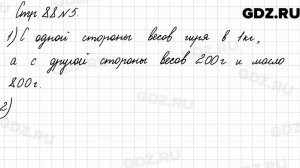 GDZ.RU
Стр. 88 № 5.
1) С одной стороны весов гиря в 1 кг,
а с другой стороны весов 200 г и масло
800 г.
2)